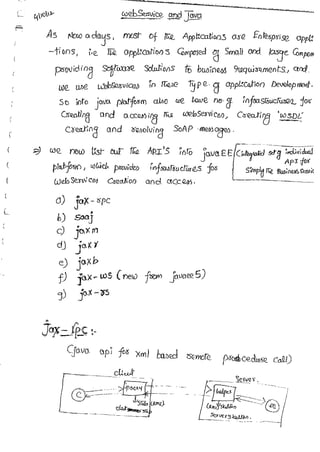 webService and Java
As Now a days, most of the Applications are Enterprise appli
-tions, i.e The applications Composed of Small and large Compon
providing Software Solutions to business requirements, and
we use webservices in These Type of application Development.
So into java platform also we have no. of infrastructure for
Creating and accessing this webservices, Creating 'WSDL'
Creating and resolving SOAP messages.
=> we now list out The API'S into java EE (integrated set of individual
API for
platform, which provides infrastructures for Simplify the Business Servic
Web Services Creation and access.
a) jax-rpc
b) saaj
c) jaxm
d) jaxr
e) jaxb
f) jax-ws (new from javaee5)
g) jax-rs
Jax-rpc :-
(Java api for xml based remote procedure call)
client
Server
C
proxy
helper
Server skeleton